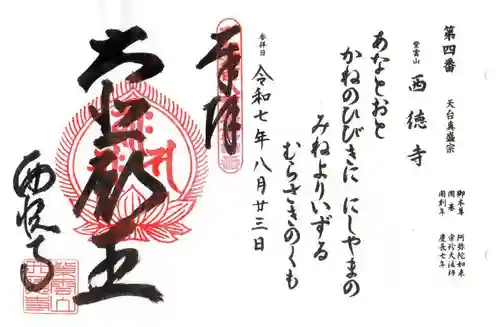 第四番
天台真盛宗
紫雲山
西徳寺
御本尊 阿弥陀如来
開基 宗珍大法師
開創年 慶長七年
あなとおと
かねのひびきに にしやまの
みねよりいずる
むらさきのくも
参拝日 令和七年八月廿三日
奉拝
西徳寺